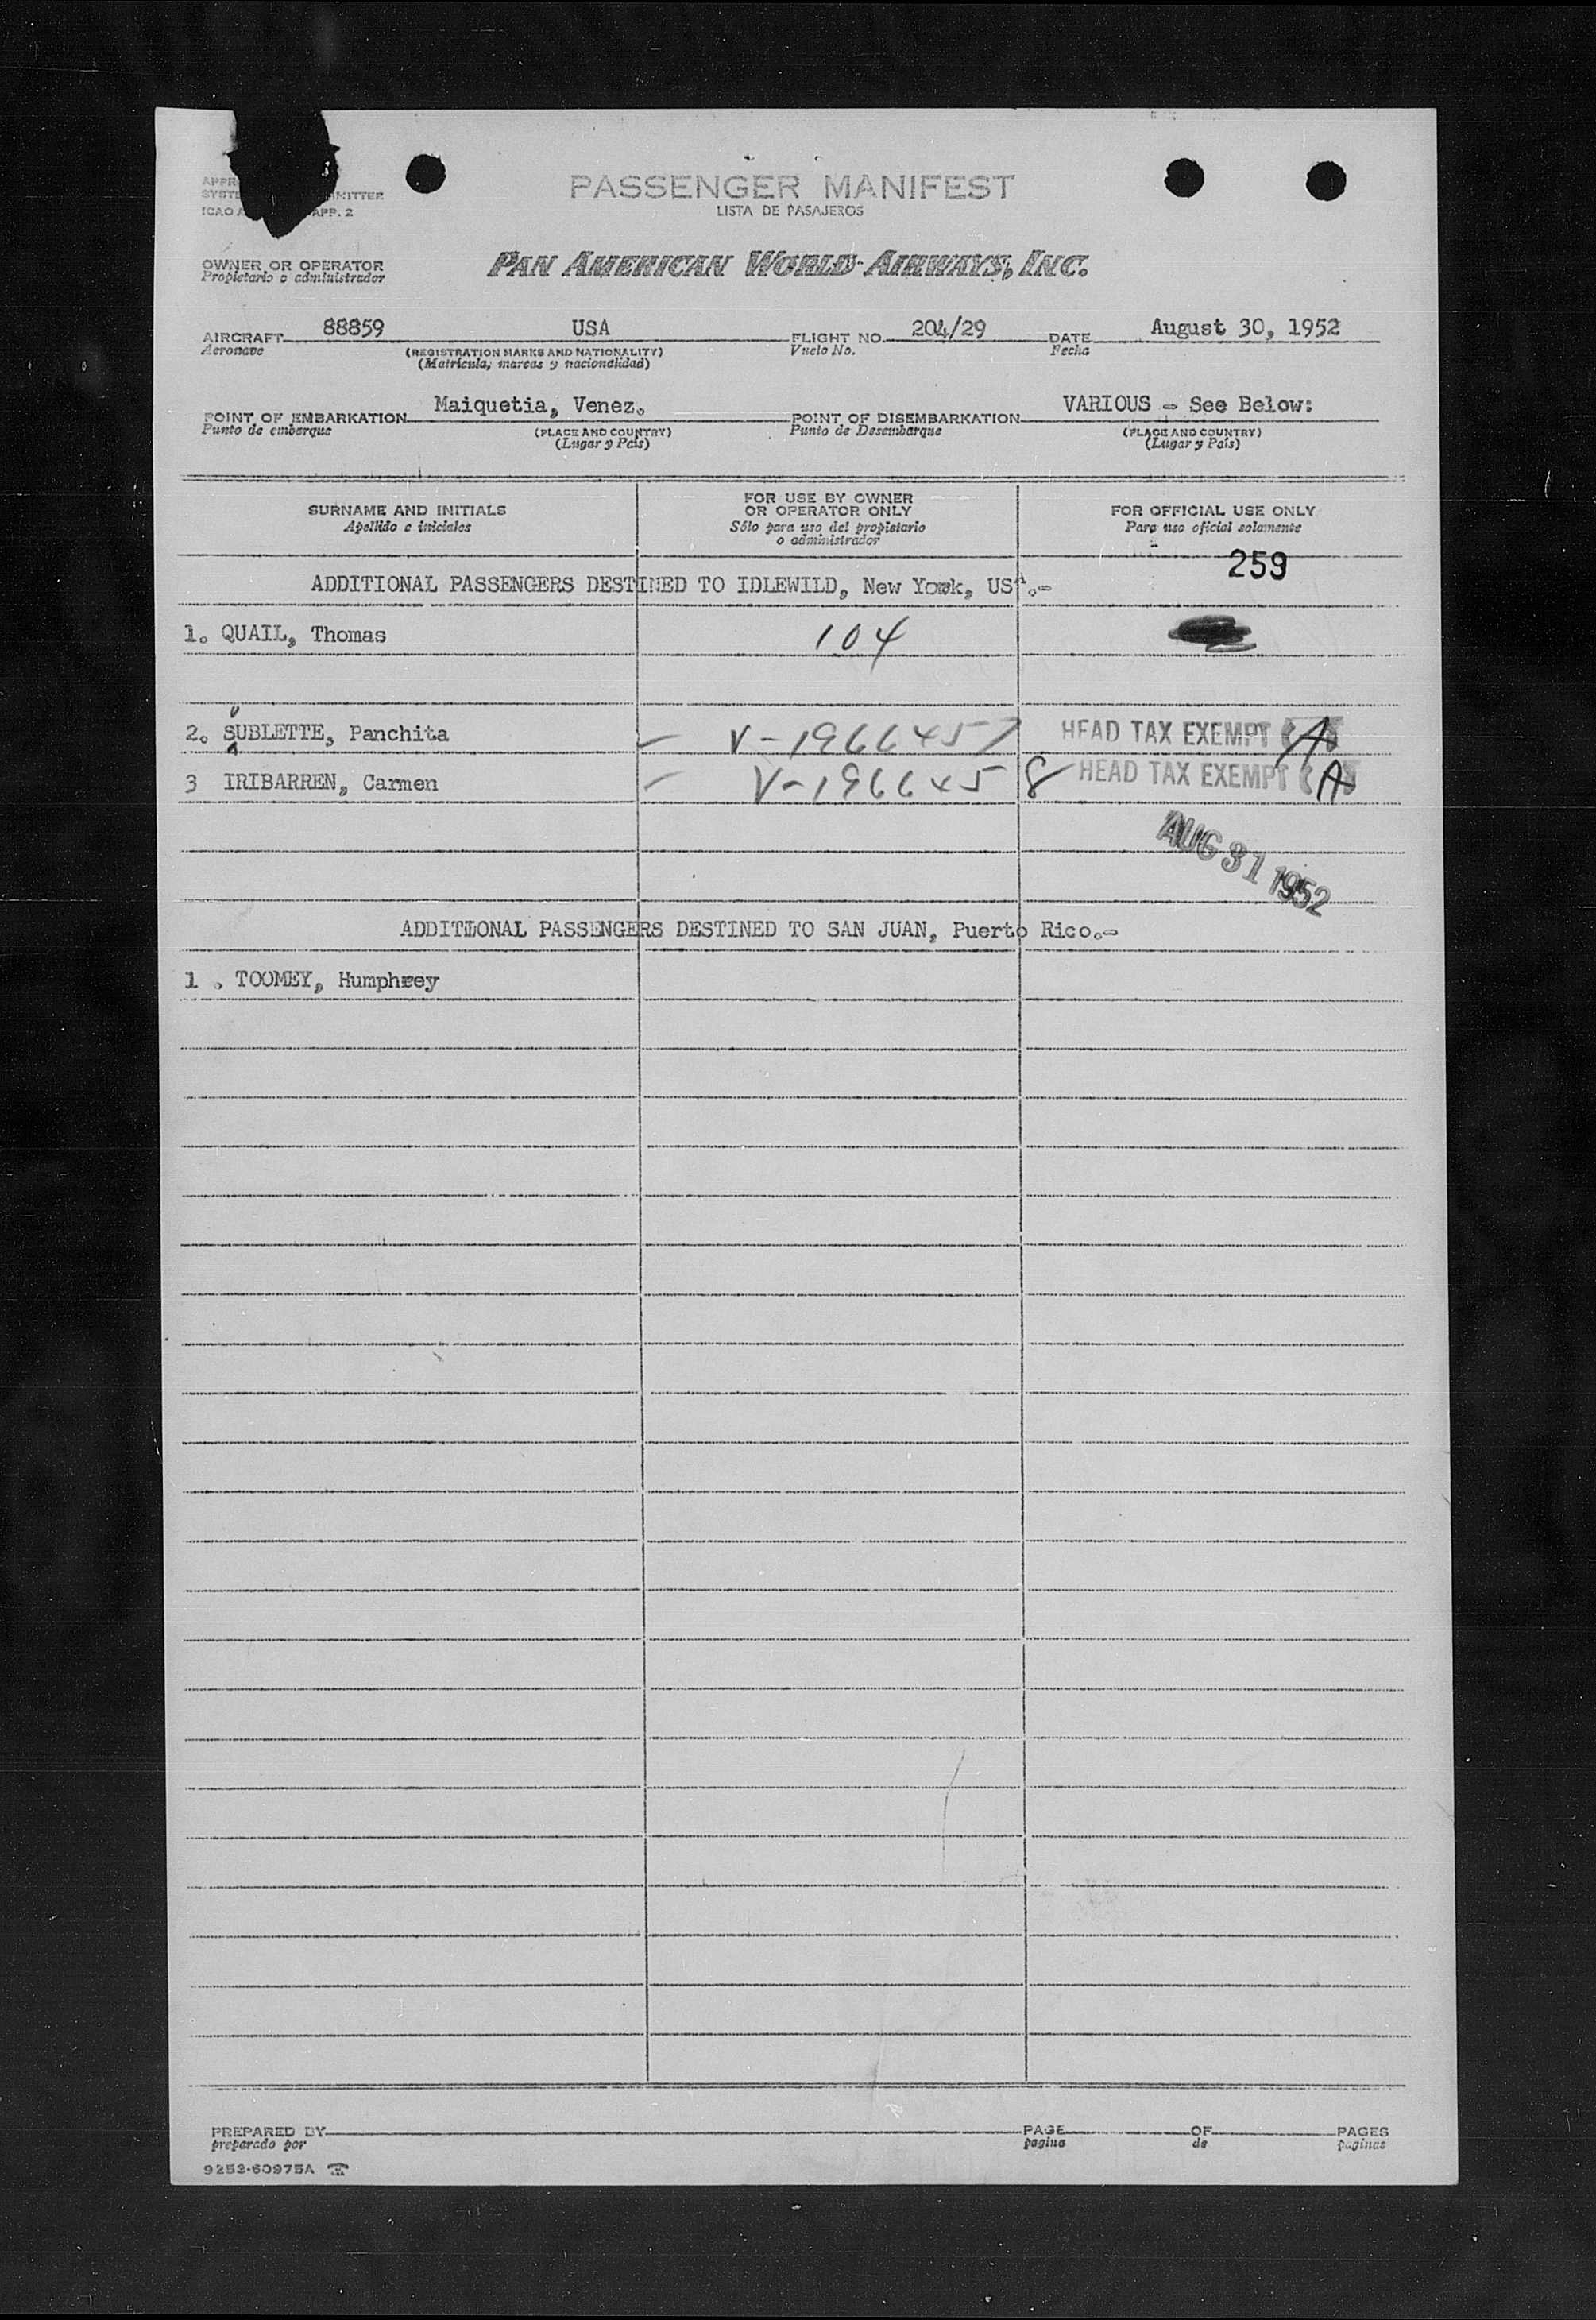 PASSENGER MANIFEST
LISTA DE PASAJEROS
ICAO APP. 2
OWNER OR OPERATOR
Propietario o administrador
PAN AMERICAN WORLD AIRWAYS, INC.
AIRCRAFT 88859 USA FLIGHT NO. 204/29 DATE August 30, 1952
Aeronave (REGISTRATION MARKS AND NATIONALITY) Vuelo No. Fecha
(Matrícula, marcas y nacionalidad)
POINT OF EMBARKATION Maiquetia, Venez. POINT OF DISEMBARKATION VARIOUS - See Below:
Punto de embarque (PLACE AND COUNTRY) Punto de Desembarque (PLACE AND COUNTRY)
(Lugar y País) (Lugar y País)
SURNAME AND INITIALS FOR USE BY OWNER OR OPERATOR ONLY FOR OFFICIAL USE ONLY
Apellido e iniciales Sólo para uso del propietario o administrador Para uso oficial solamente
259
ADDITIONAL PASSENGERS DESTINED TO IDLEWILD, New York, USA.-
1. QUAIL, Thomas 104
2. SUBLETTE, Panchita - V-1966457 HEAD TAX EXEMPT A
3 IRIBARREN, Carmen - V-1966458 HEAD TAX EXEMPT A
AUG 31 1952
ADDITIONAL PASSENGERS DESTINED TO SAN JUAN, Puerto Rico.-
1 . TOOMEY, Humphrey
PREPARED BY PAGE OF PAGES
preparado por pagina de paginas
9253-60975A